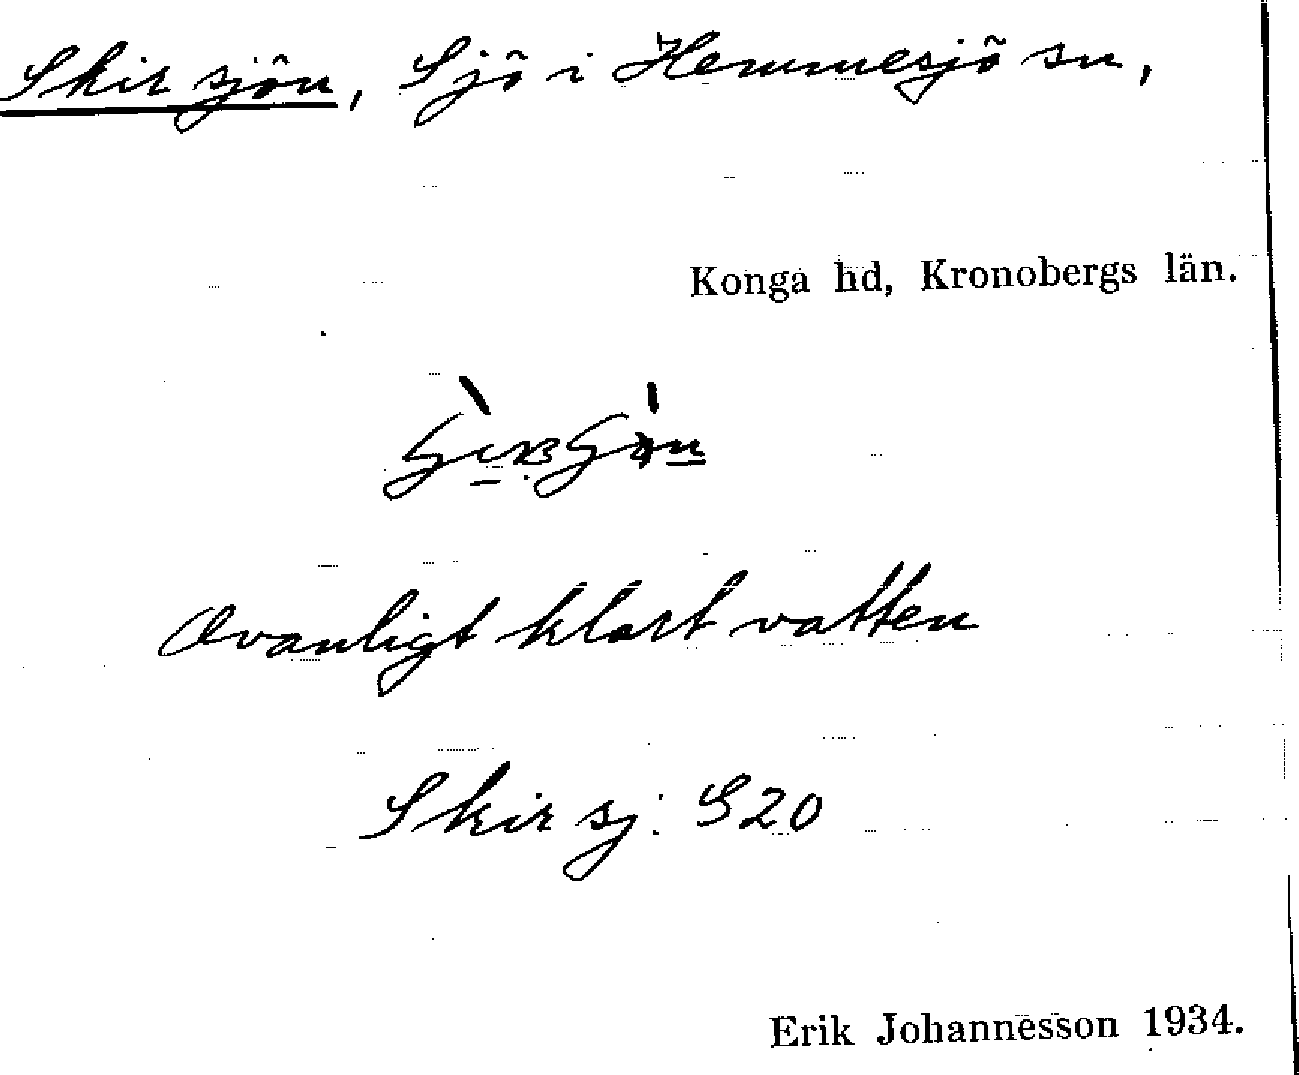 Skirsjön, Sjö i Hemmesjö sn,
Konga hd, Kronobergs län.
Ovanligt klart vatten
Skirsj: S20
Erik Johannesson 1934.